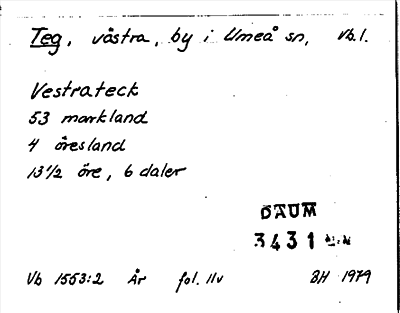 Teg, västra, by i Umeå sn, Vb.l.
Vestrateck
53 markland
4 öresland
13 1/2 öre, 6 daler
DAUM
3431
Vb 1553:2 År fol. 11v BH 1979